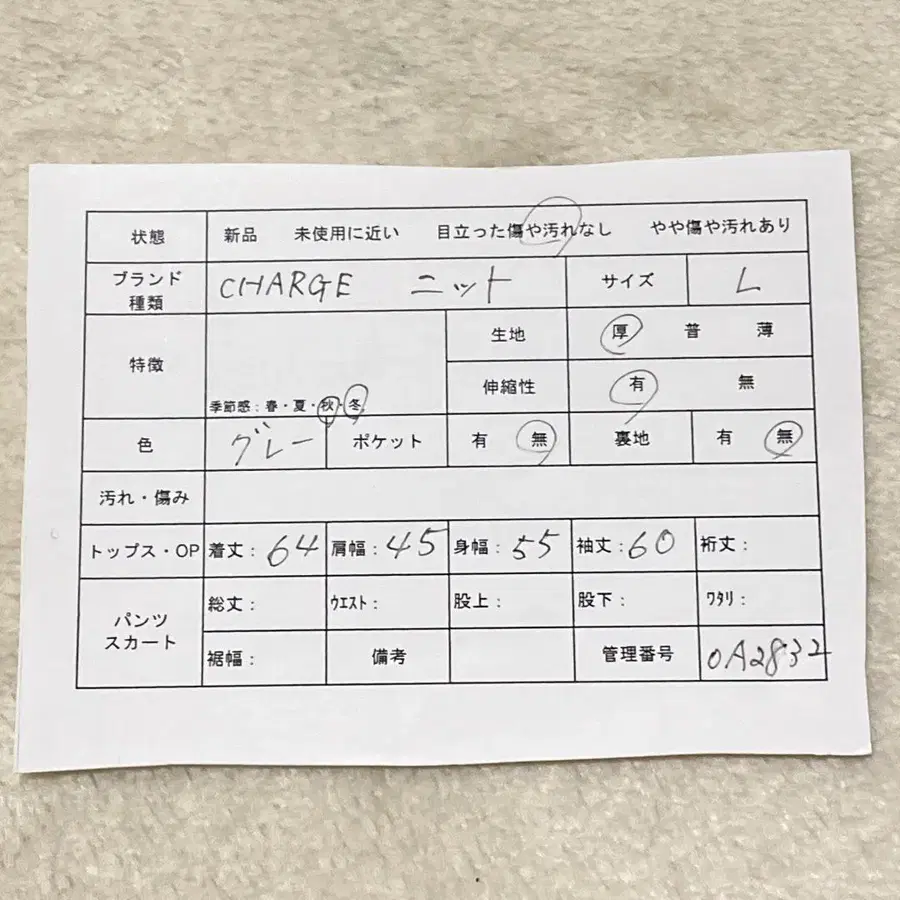 状態 新品 未使用に近い 目立った傷や汚れなし やや傷や汚れあり
ブランド 種類 CHARGE ニット サイズ L
特徴 生地 厚 普 薄
伸縮性 有 無
季節感：春・夏・秋・冬
色 グレー ポケット 有 無 裏地 有 無
汚れ・傷み
トップス・OP 着丈：64 肩幅：45 身幅：55 袖丈：60 裄丈：
パンツ スカート 総丈： ｳｴｽﾄ： 股上： 股下： ﾜﾀﾘ：
裾幅： 備考 管理番号 0A2832